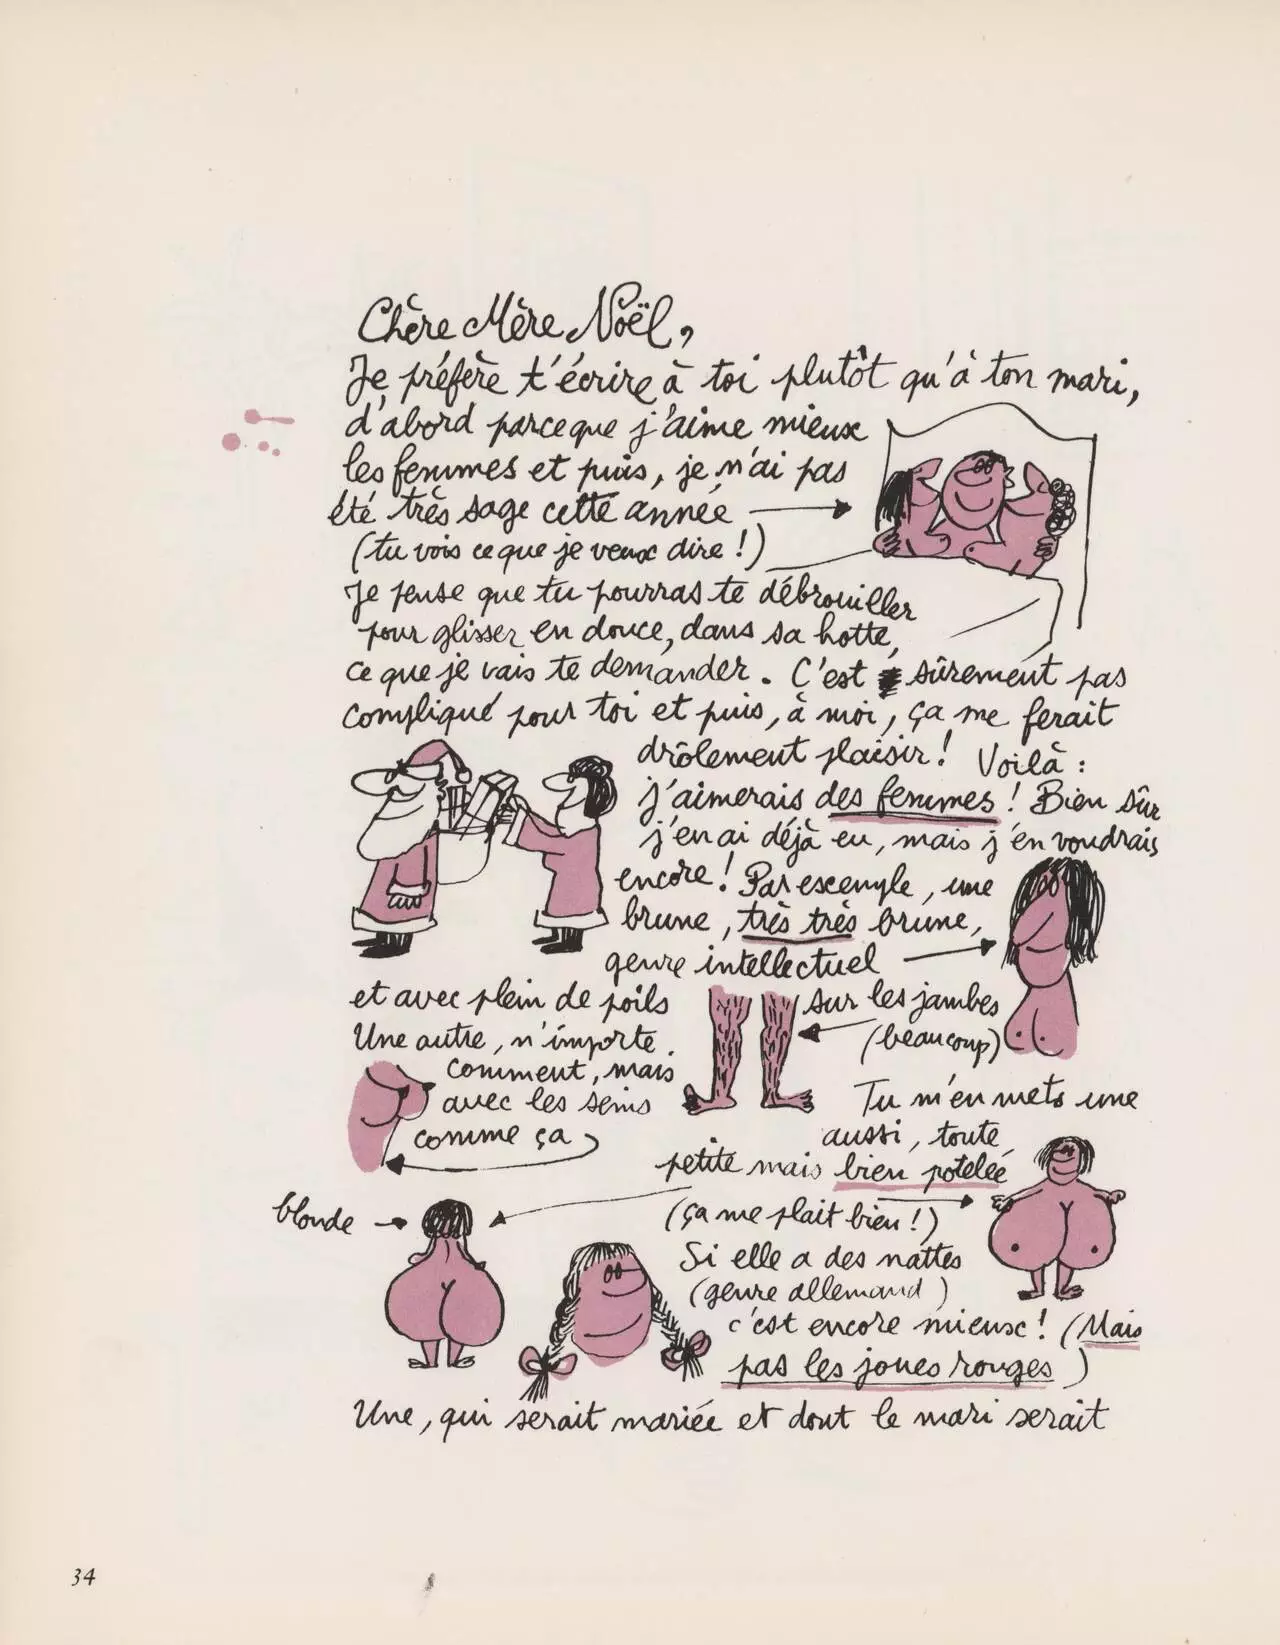 Chère Mère Noël,
Je préfère t'écrire à toi plutôt qu'à ton mari,
d'abord parceque j'aime mieux
les femmes et puis, je n'ai pas
été très sage cette année
(tu vois ce que je veux dire !)
Je pense que tu pourras te débrouiller
pour glisser en douce, dans sa hotte,
ce que je vais te demander. C'est sûrement pas
compliqué pour toi et puis, à moi, ça me ferait
drôlement plaisir ! Voilà :
j'aimerais des femmes ! Bien sûr
j'en ai déjà eu, mais j'en voudrais
encore ! Par exemple, une
brune, très très brune,
genre intellectuel
et avec plein de poils sur les jambes
(beaucoup)
Une autre, n'importe
comment, mais
avec les seins
comme ça
Tu m'en mets une
aussi, toute
petite mais bien potelée
blonde
(ça me plait bien !)
Si elle a des nattes
(genre allemand)
c'est encore mieux ! (Mais
pas les joues rouges)
Une, qui serait mariée et dont le mari serait
34